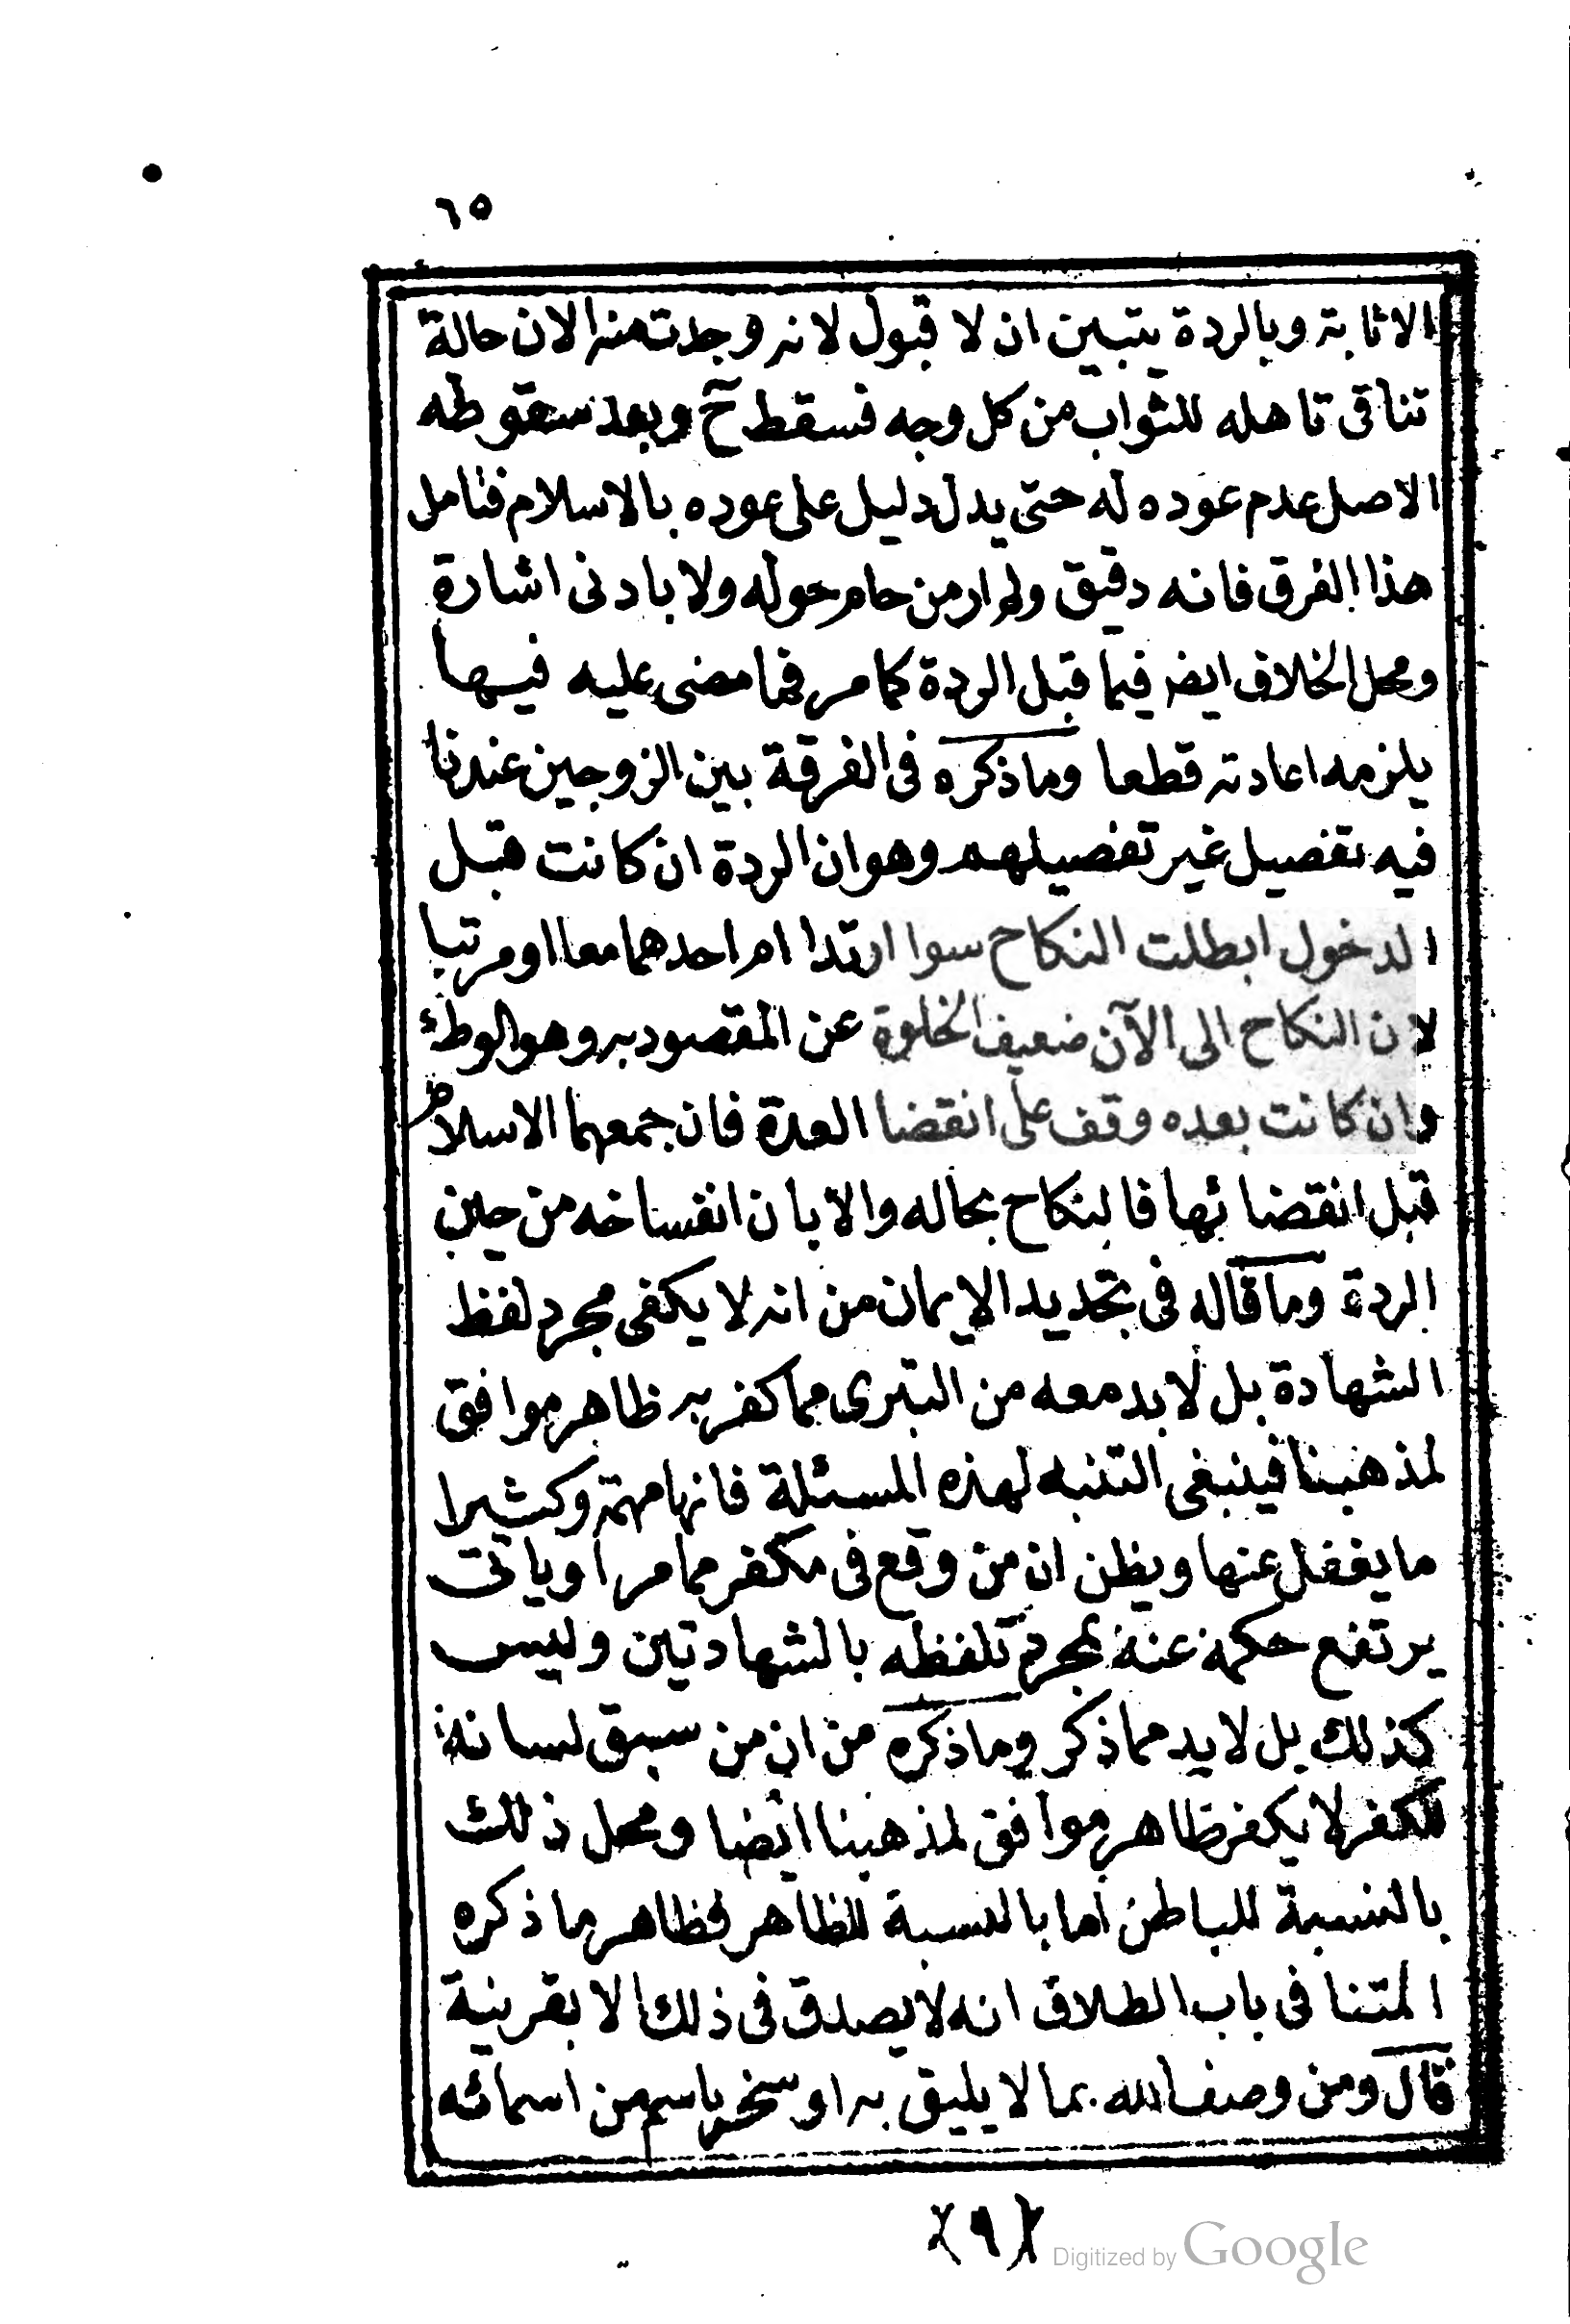 ٦٥
الاثابة وبالردة يتبين ان لا قبول لانه وجدت منه الان حالة
تنافى تاهله للثواب من كل وجه فسقط ح وبعد سقوطه
الاصل عدم عوده له حتى يدل دليل على عوده بالاسلام فتامل
هذا الفرق فانه دقيق ولم ار من حام حوله ولا بادنى اشارة
ومحل الخلاف ايضا فيما قبل الردة كما مر فما مضى عليه فيها
يلزمه اعادته قطعا وما ذكره فى الفرقة بين الزوجين عندنا
فيه تفصيل غير تفصيلهم وهو ان الردة ان كانت قبل
الدخول ابطلت النكاح سوا ارتدا ام احدهما معا او مرتبا
لان النكاح الى الآن ضعيف لخلوة عن المقصود به وهو الوطئ
وان كانت بعده وقف على انقضا العدة فان جمعهما الاسلام
قبل انقضائها فالنكاح بحاله والا بان انفساخه من حين
الردة وما قاله فى تجديد الايمان من انه لا يكفى مجرد لفظ
الشهادة بل لا بد معه من التبرى مما كفر به ظاهر موافق
لمذهبنا فينبغى التنبه لهذه المسئلة فانها مهمة وكثيرا
ما يغفل عنها ويظن ان من وقع فى مكفر مما مر او ياتى
يرتفع حكمه عنه بمجرد تلفظه بالشهادتين وليس
كذلك بل لا بد مما ذكر وما ذكره من ان من سبق لسانه
للكفر لا يكفر ظاهر موافق لمذهبنا ايضا ومحل ذلك
بالنسبة للباطن اما بالنسبة للظاهر فظاهر ما ذكره
ائمتنا فى باب الطلاق انه لا يصدق فى ذلك الا بقرينة
قال ومن وصف الله بما لا يليق به او سخر باسم من اسمائه
(٩)
Digitized by Google